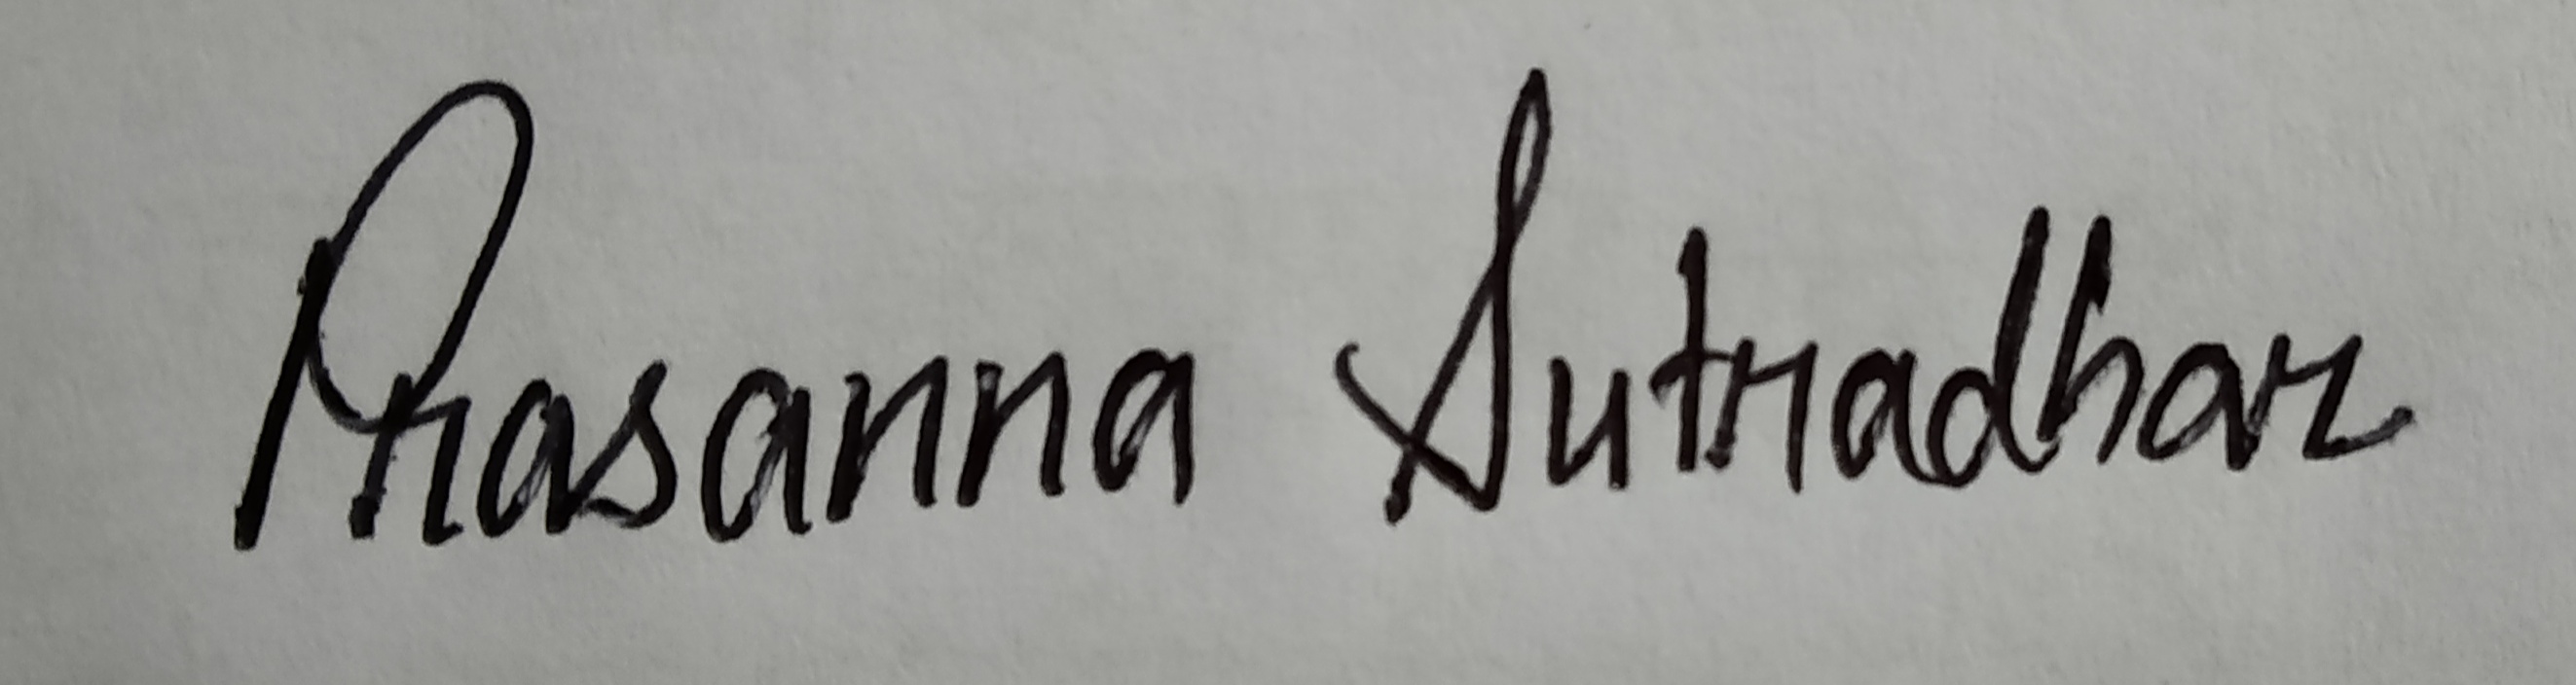 Prasanna Sutradhar